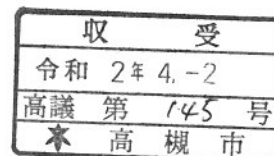 収 受
令和 2年 4.-2
高議 第 145 号
高槻市